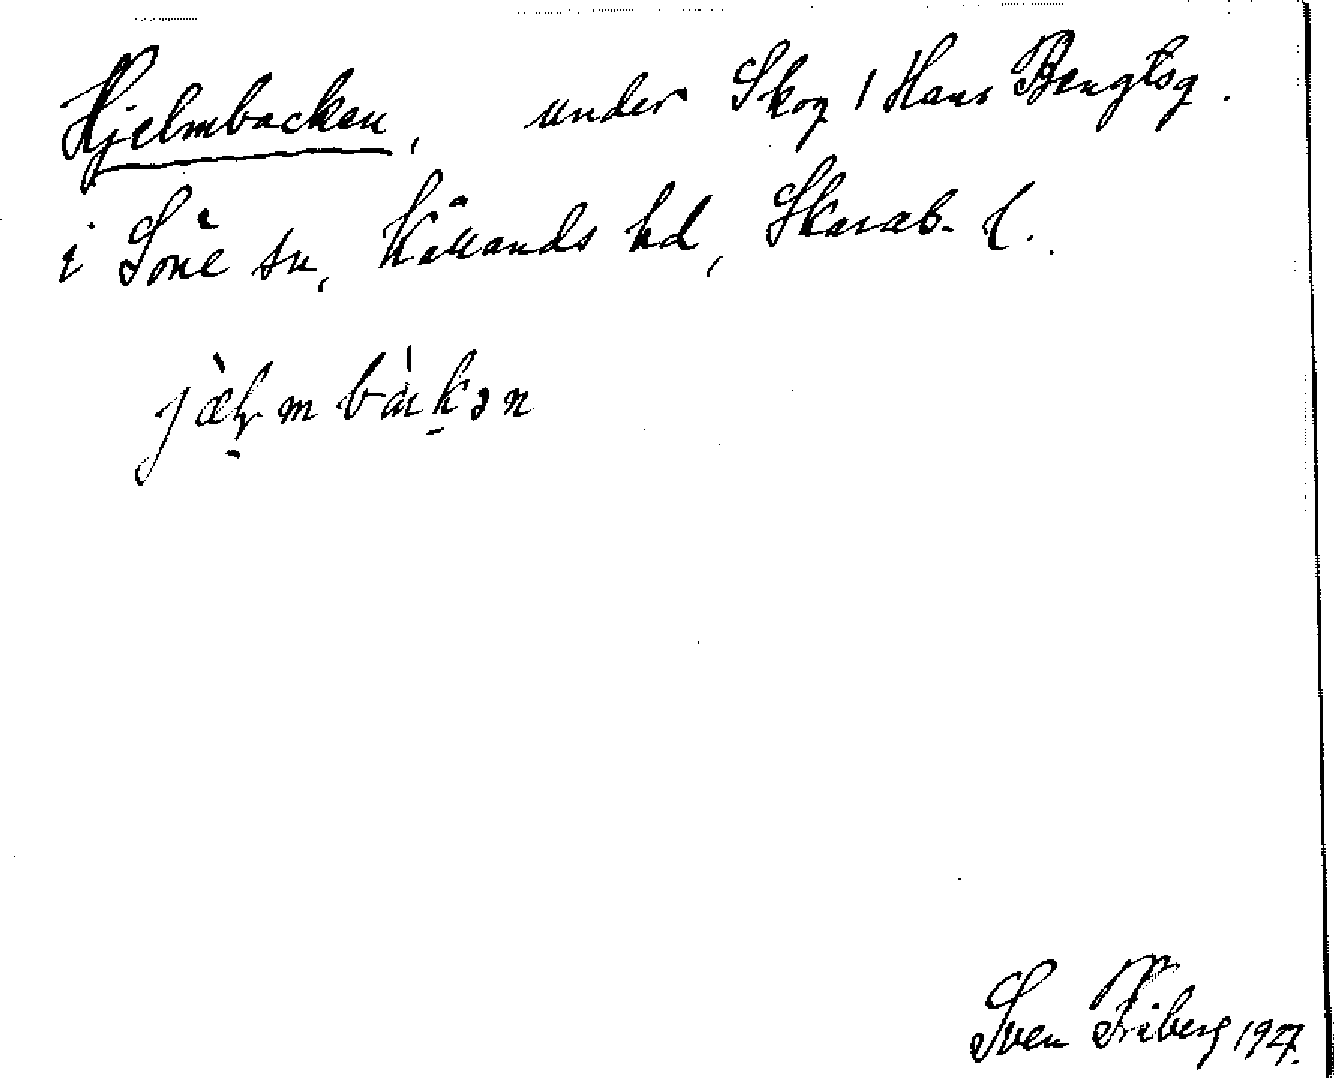 Hjelmbacken, under Skog, Hans Bengtsg.
i Söne sn, Kållands hd, Skarab. l.
jàlmbàkən
Sven Friberg 1927.